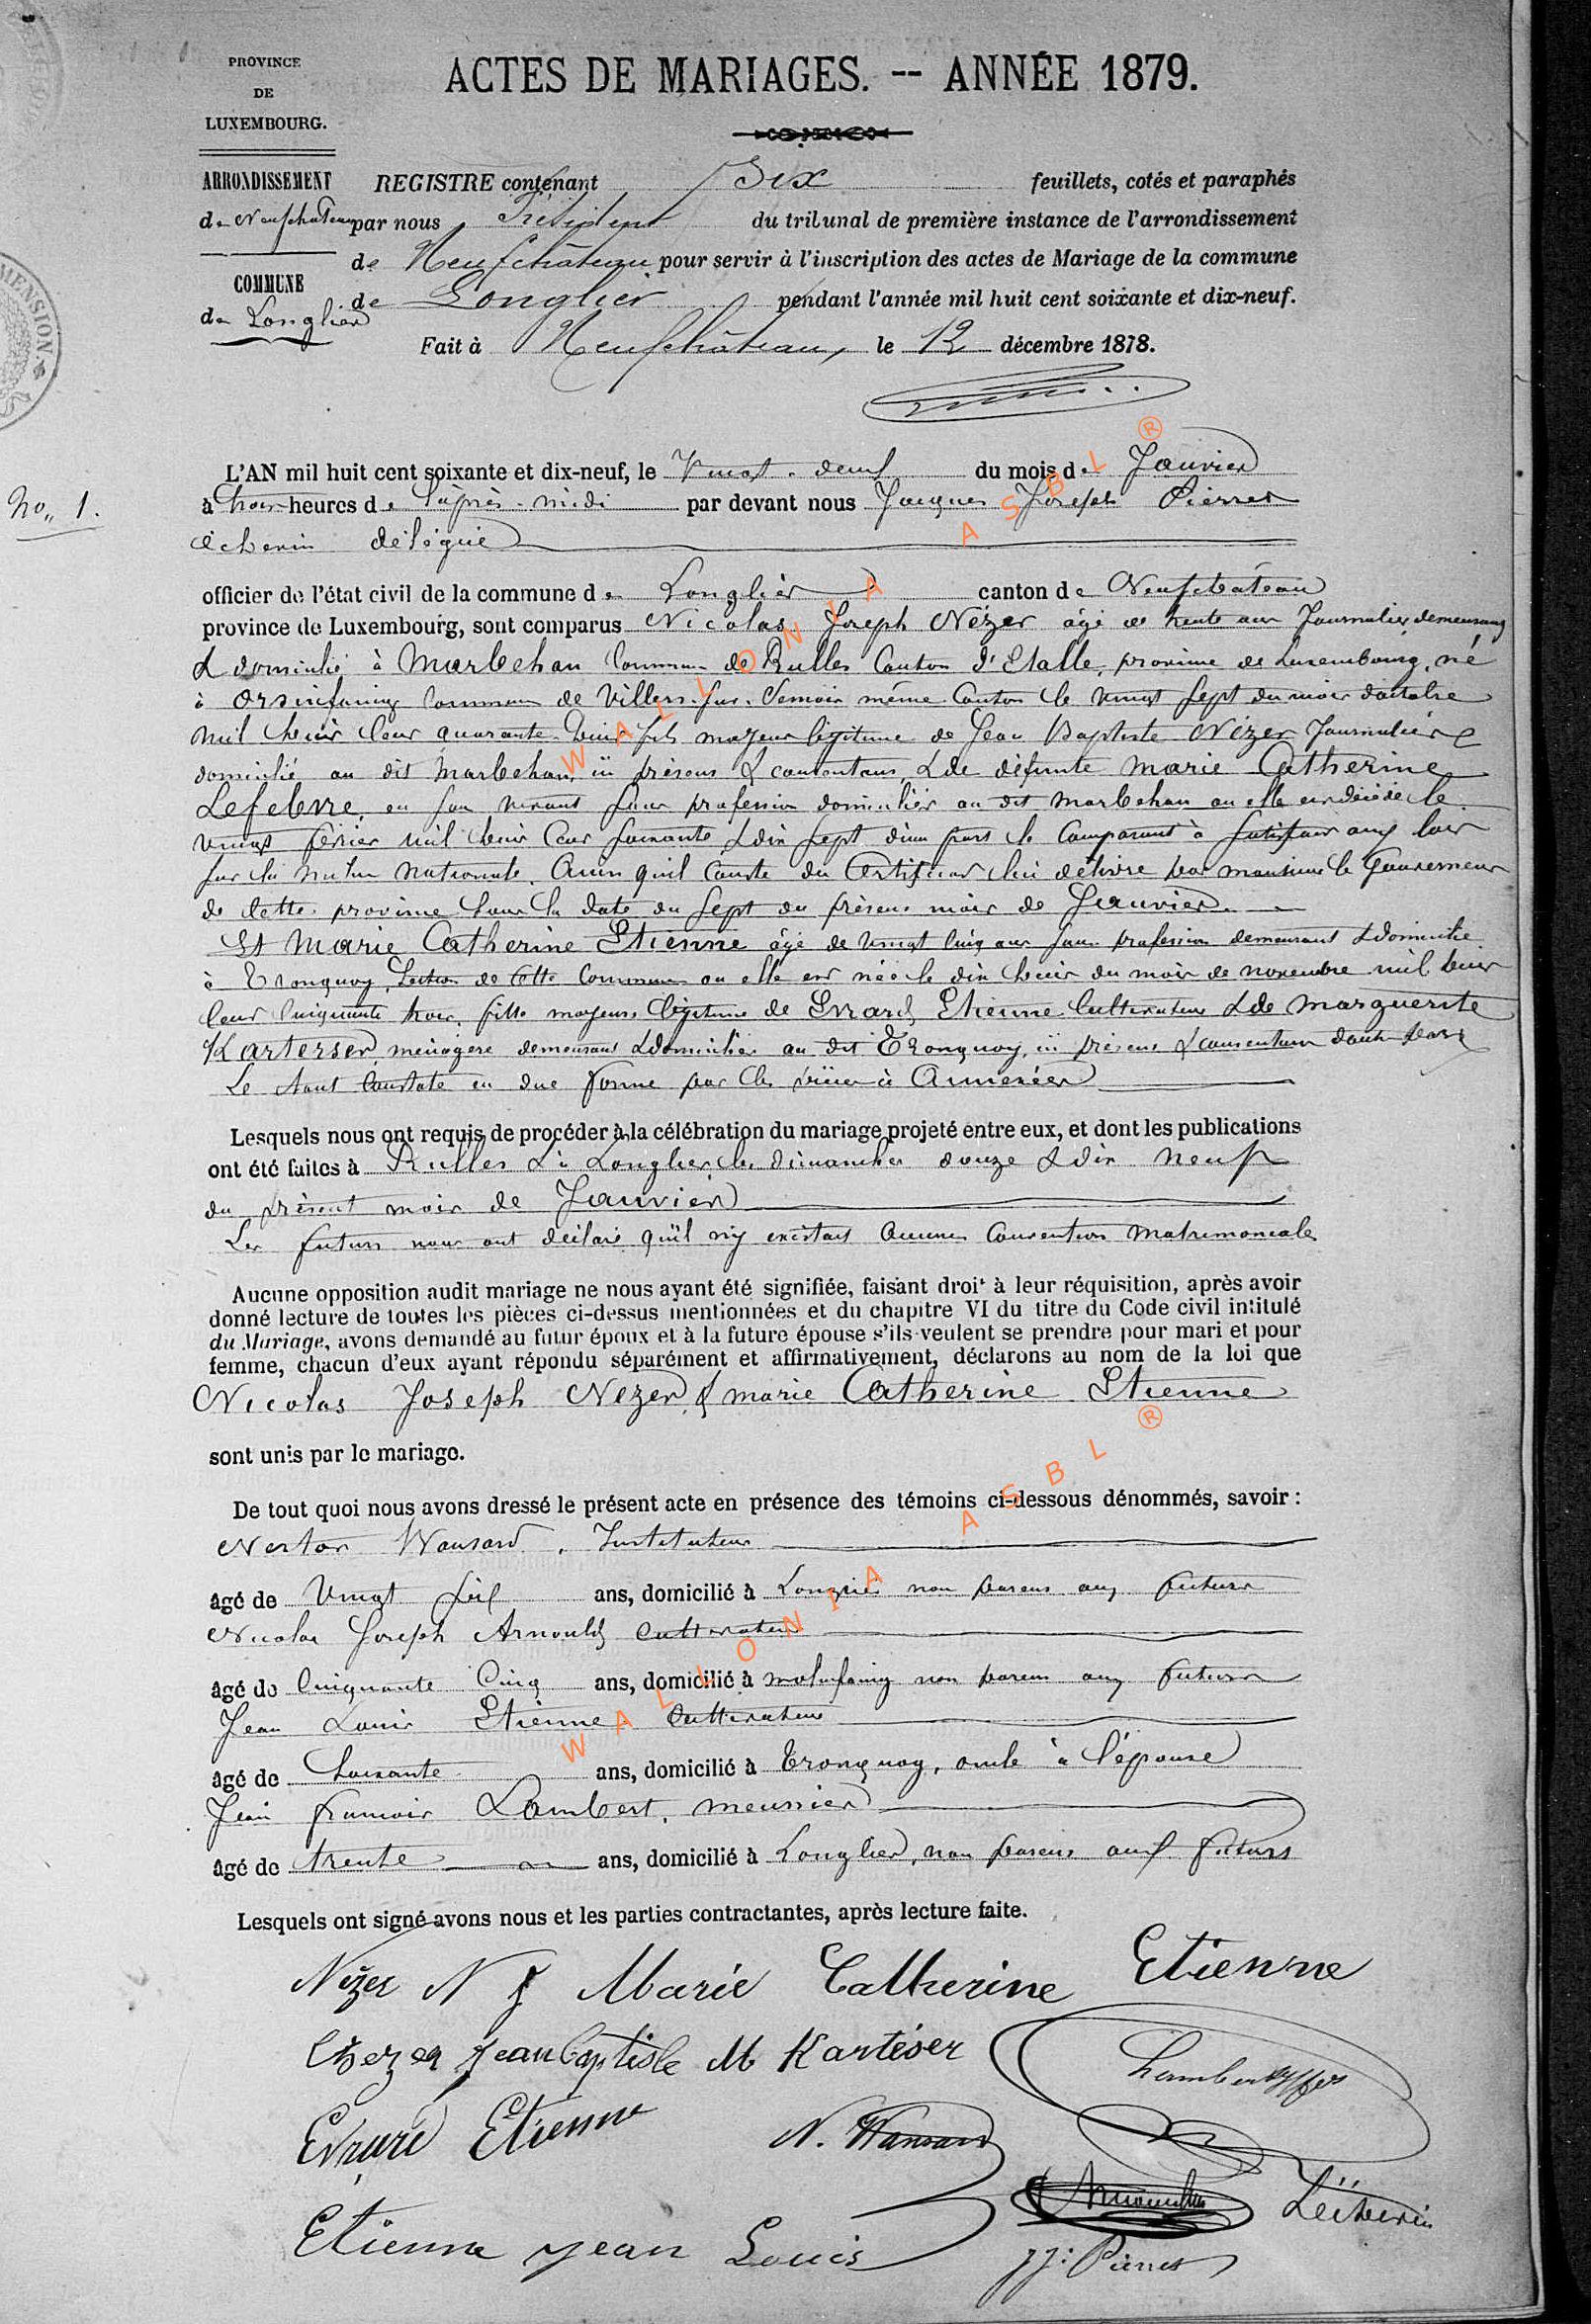 PROVINCE
DE
LUXEMBOURG.
ACTES DE MARIAGES. -- ANNÉE 1879.
ARRONDISSEMENT
de Neufchateau
COMMUNE
de Longlier
REGISTRE contenant Six feuillets, cotés et paraphés
par nous Président du tribunal de première instance de l'arrondissement
de Neufchâteau pour servir à l'inscription des actes de Mariage de la commune
de Longlier pendant l'année mil huit cent soixante et dix-neuf.
Fait à Neufchâteau, le 12 décembre 1878.
No. 1.
L'AN mil huit cent soixante et dix-neuf, le Vingt-deux du mois de Janvier
à trois heures de l'après-midi par devant nous Jacques Joseph Pierret
échevin délégué
officier de l'état civil de la commune de Longlier canton de Neufchateau
province de Luxembourg, sont comparus Nicolas Joseph Nézer âgé de trente ans Journalier demeurant
& domicilié à Marbehan Commune de Rulles Canton d'Etalle, province de Luxembourg, né
à Orsinfaing Commune de Villers-sur-Semois même Canton le vingt sept du mois d'octobre
mil huit cent quarante huit fils majeur légitime de Jean Baptiste Nézer Journalier &
domicilié au dit Marbehan, ici présent & consentant & de défunte Marie Catherine
Lefebvre, en son vivant sans profession domiciliée au dit Marbehan ou elle est décédée le
vingt février mil huit cent soixante & dix sept d'une part le Comparant à satisfait aux lois
sur la milice Nationale. Ainsi qu'il conste du Certificat lui délivré par monsieur le Gouverneur
de cette province sous la date du sept du présent mois de Janvier.
Et Marie Catherine Etienne âgé de vingt cinq ans sans profession demeurant & domicilie
à Tronquoy, Section de cette Commune ou elle est née le dix huit du mois de novembre mil huit
cent cinquante trois, fille majeure légitime de Evrard Etienne Cultivateur & de Marguerite
Karterser, ménagère demeurant & domiciliés au dit Tronquoy, ici présens & consentans d'autre part
Le tout Constaté en due forme par les pièces ci Annexées
Lesquels nous ont requis de procéder à la célébration du mariage projeté entre eux, et dont les publications
ont été faites à Rulles & à Longlier les dimanches douze & dix neuf
du présent mois de Janvier
Les futurs nous ont déclaré qu'il n'y existait Aucune Convention Matrimoniale
Aucune opposition audit mariage ne nous ayant été signifiée, faisant droit à leur réquisition, après avoir
donné lecture de toutes les pièces ci-dessus mentionnées et du chapitre VI du titre du Code civil intitulé
du Mariage, avons demandé au futur époux et à la future épouse s'ils veulent se prendre pour mari et pour
femme, chacun d'eux ayant répondu séparément et affirmativement, déclarons au nom de la loi que
Nicolas Joseph Nezer & Marie Catherine Etienne
sont unis par le mariage.
De tout quoi nous avons dressé le présent acte en présence des témoins ci-dessous dénommés, savoir :
Nestor Wansard, Instituteur
âgé de Vingt six ans, domicilié à Longlier non parent aux futurs
Nicolas Joseph Arnould Cultivateur
âgé de Cinquante Cinq ans, domicilié à Molinfaing non parent aux futurs
Jean Louis Etienne Cultivateur
âgé de Soixante ans, domicilié à Tronquoy, oncle à l'épouse
Jean françois Lambert, meunier
âgé de trente ans, domicilié à Longlier, non parent aux futurs
Lesquels ont signé avons nous et les parties contractantes, après lecture faite.
Nézer N J Marie Catherine Etienne
Nezer Jean baptiste M Kartéser
Evrard Etienne N. Wansard
Etienne jean Louis J J. Pierret
L'échevin
WALLONIA ASBL ®
WALLONIA ASBL ®